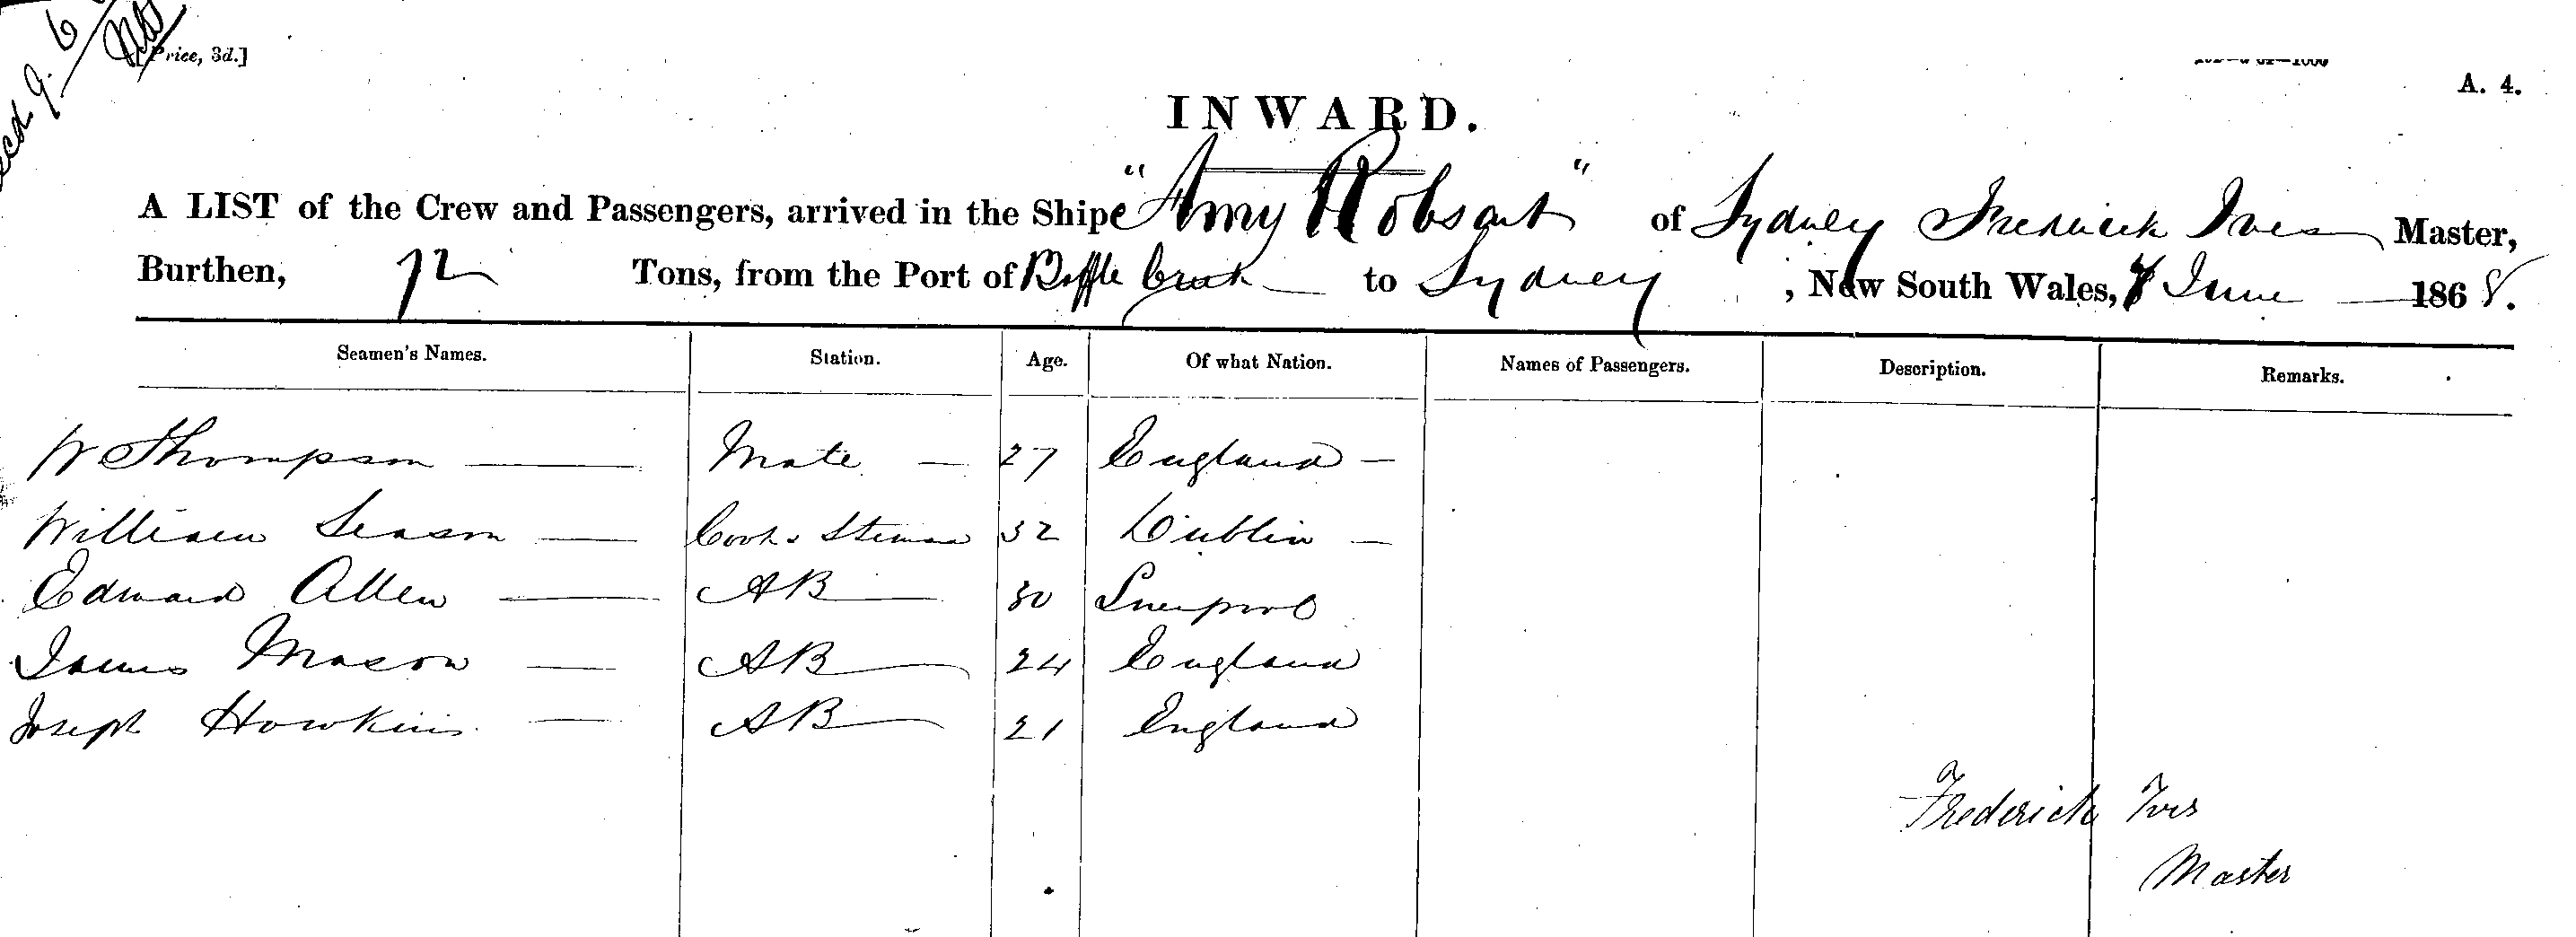 [Price, 3d.]
A. 4.
INWARD.
A LIST of the Crew and Passengers, arrived in the Ship "Amy Robsart" of Sydney Frederick Ives Master,
Burthen, 72 Tons, from the Port of Baffle Creek to Sydney, New South Wales, 8 June 1868.
Seamen's Names. Station. Age. Of what Nation. Names of Passengers. Description. Remarks.
W Thompson Mate 27 England
William Season Cook & Steward 32 Dublin
Edward Allen AB 30 Liverpool
James Mason AB 24 England
Joseph Hawkins AB 21 England
Frederick Ives
Master